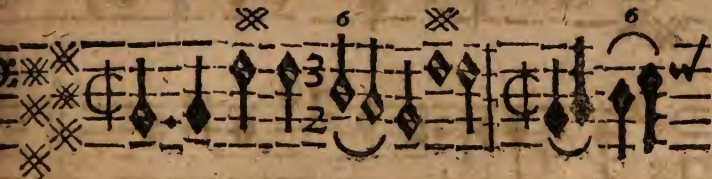 6 6
3
2